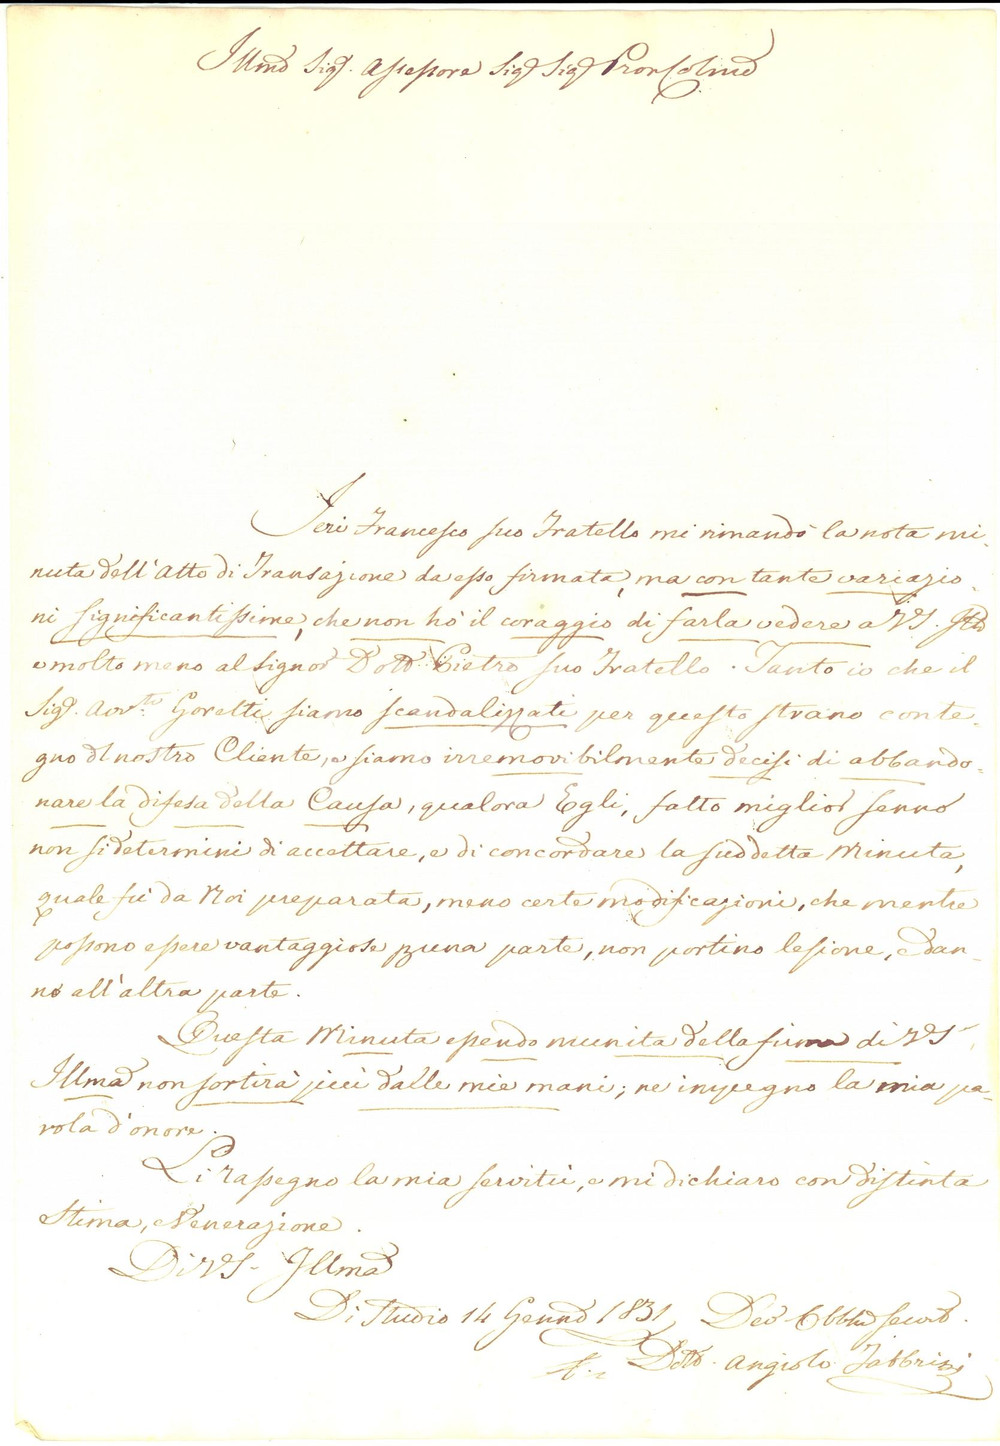 Illmo Sig.r Assessore Sig.r Sig.r Pron Colmo
Jeri Francesco suo Fratello mi rimandò la nota mi-
nuta dell'Atto di Transazione da esso firmata, ma con tante variazio-
ni significantissime, che non hò il coraggio di farla vedere a VS. Illma
e molto meno al Signor Dott. Pietro suo Fratello. Tanto io che il
Sig.r Avv.to Goretti siamo scandalizzati per questo strano conte-
gno del nostro Cliente, e siamo irremovibilmente decisi di abbando-
nare la difesa della Causa, qualora Egli, fatto miglior senno
non si determini di accettare, e di concordare la suddetta Minuta,
quale fù da Noi preparata, meno certe modificazioni, che mentre
possono essere vantaggiose p una parte, non portino lesione, e dan-
no all'altra parte.
Questa Minuta essendo munita della firma di VS.
Illma non sortirà più dalle mie mani; ne impegno la mia pa-
rola d'onore.
Li rassegno la mia servitù, e mi dichiaro con distinta
stima, e Venerazione.
Di VS. Illma
Di Studio 14 Genno 1831 Devo Obblmo servo.
Dotto. Angiolo Fabbrini